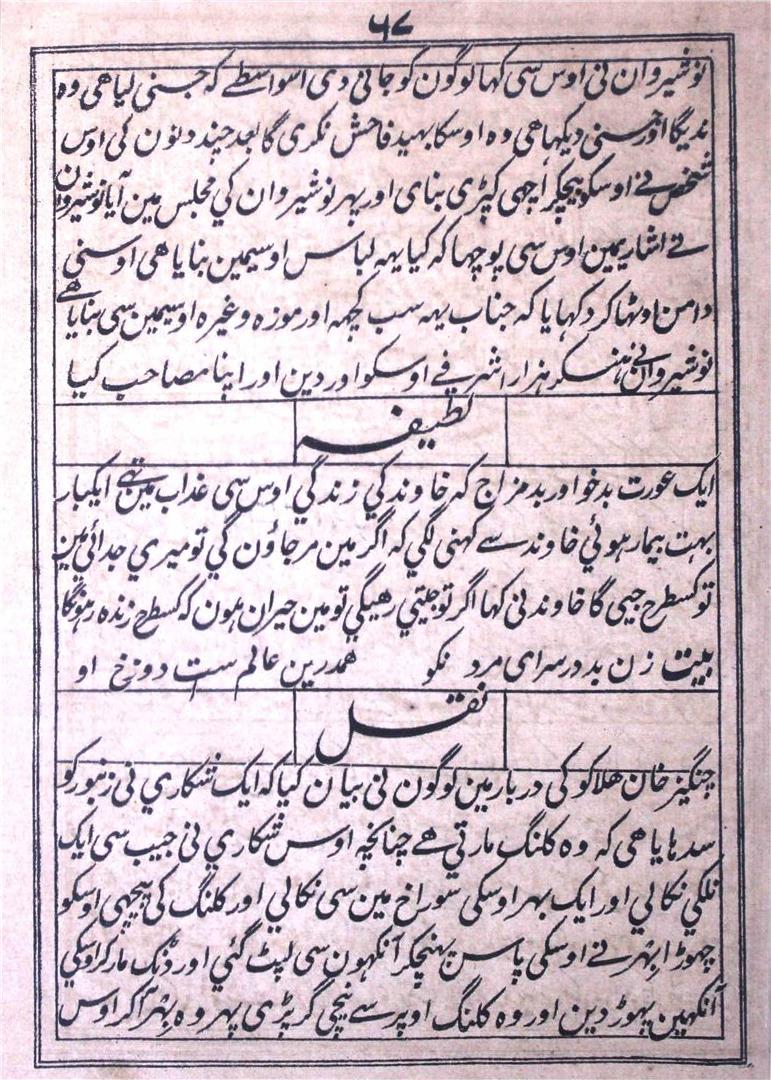 ۶۸
نوشیروان نی اوس سی کہا لوگون کو جانی دی اسواسطے کہ جسنی لیا هی وہ
ندیگا اور جسنی دیکہا هی وہ اوسکا بہید فاحش نکری گا بعد چند دنون کی اوس
شخص نے اوسکو بیچکر اچهی کپڑی بنای اور پہر نوشیروان کي مجلس مین آیا نوشیروان
نے اشاریمین اوس سی پوچہا کہ کیا یہہ لباس اوسیمین بنایا هی اوسنی
دامن اوٹہا کر دکہایا کہ جناب یہہ سب کچہہ اور موزہ وغیرہ اوسیمین سی بنایا هے
نوشیروان نی ہنسکر ہزار اشرفے اوسکو اور دین اور اپنا مصاحب کیا
لطیفہ
ایک عورت بدخو اور بدمزاج کہ خاوند کي زندگي اوس سی عذاب مین تہی ایکبار
بہت بیمار ہوئي خاوند سے کہنی لگي کہ اگر مین مرجاؤن گي تو میري جدائي مین
تو کسطرح جیی گا خاوند نی کہا اگر تو جیتي رهیگي تو مین حیران ہون کہ کسطرح زندہ رہونگا
بیت زن بد در سرای مرد نکو همدرین عالم ست دوزخ او
نقل
چنگیز خان هلاکو کی دربار مین لوگون نی بیان کیا کہ ایک شکاري نی زنبور کو
سدہایا هی کہ وہ کلنگ مارتي هے چنانچہ اوس شکاري نی جیب سی ایک
نلکي نکالي اور ایک بہر اوسکی سوراخ مین سی نکالي اور کلنگ کی پیچہی اوسکو
چہوڑا بہڑ نے اوسکی پاس پہنچکر آنکہون سی لپٹ گئي اور ڈنک مار کر اوسکي
آنکہین پہوڑ دین اور وہ کلنگ اوپر سے نیچی گر پڑی پہر وہ بہڑ آکر اوس